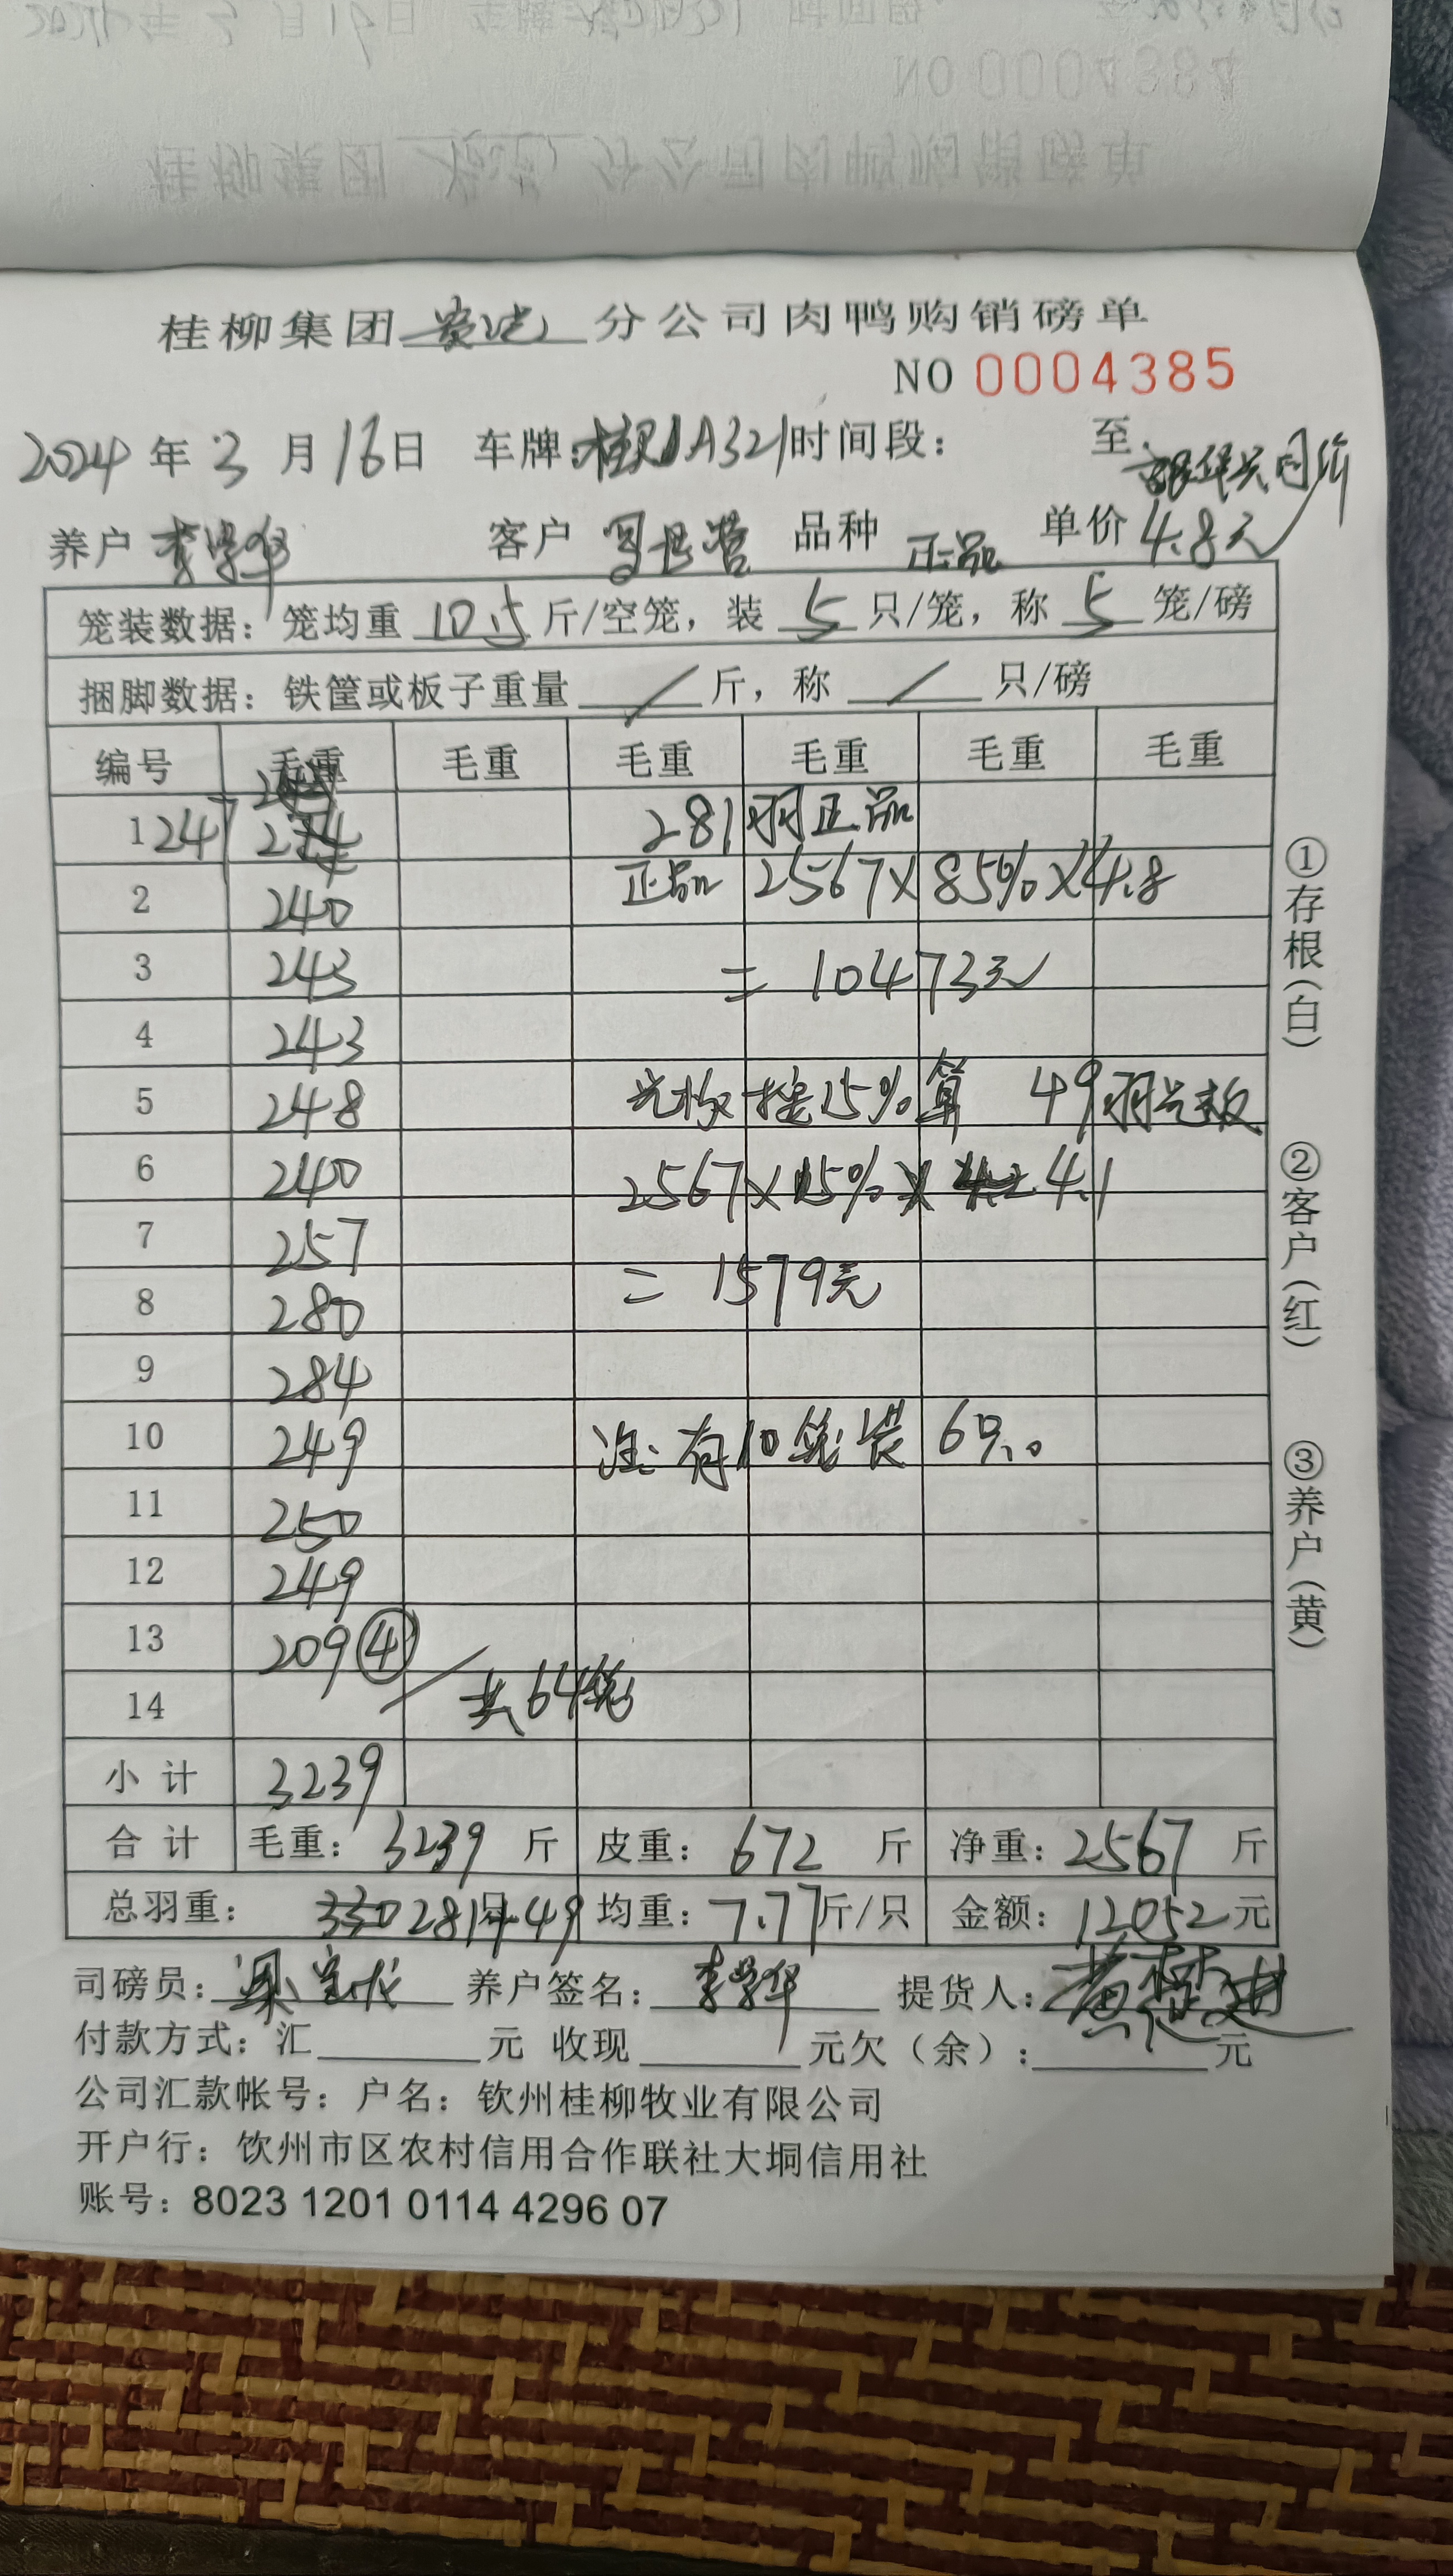 NO 0004384
桂柳集团 分公司肉鸭购销磅单
桂柳集团 分公司肉鸭购销磅单
NO 0004385
2024年3月16日 车牌:桂 A321时间段: 至
养户 李学华 客户 品种 正品 单价 4.8元
笼装数据:笼均重 10.5 斤/空笼,装 5 只/笼,称 5 笼/磅
捆脚数据:铁筐或板子重量 / 斤,称 / 只/磅
编号 毛重 毛重 毛重 毛重 毛重 毛重
1 247 281羽正品
2 240 正品 2567×85%×4.8
3 243 = 10473元
4 243
5 248 光板按15%算 49羽光板
6 240 2567×15%× 4.1
7 257
8 280 = 1579元
9 284
10 249 注:有10笼装6只。
11 250
12 249
13 209④
14 共64笼
小计 3239
合计 毛重: 3239 斤 皮重: 672 斤 净重: 2567 斤
总羽重: 330 281+49 均重: 7.77斤/只 金额: 12052元
司磅员: 养户签名: 李学华 提货人:
付款方式:汇 元 收现 元欠(余): 元
公司汇款帐号:户名:钦州桂柳牧业有限公司
开户行:饮州市区农村信用合作联社大垌信用社
账号:8023 1201 0114 4296 07
①存根(白)
②客户(红)
③养户(黄)